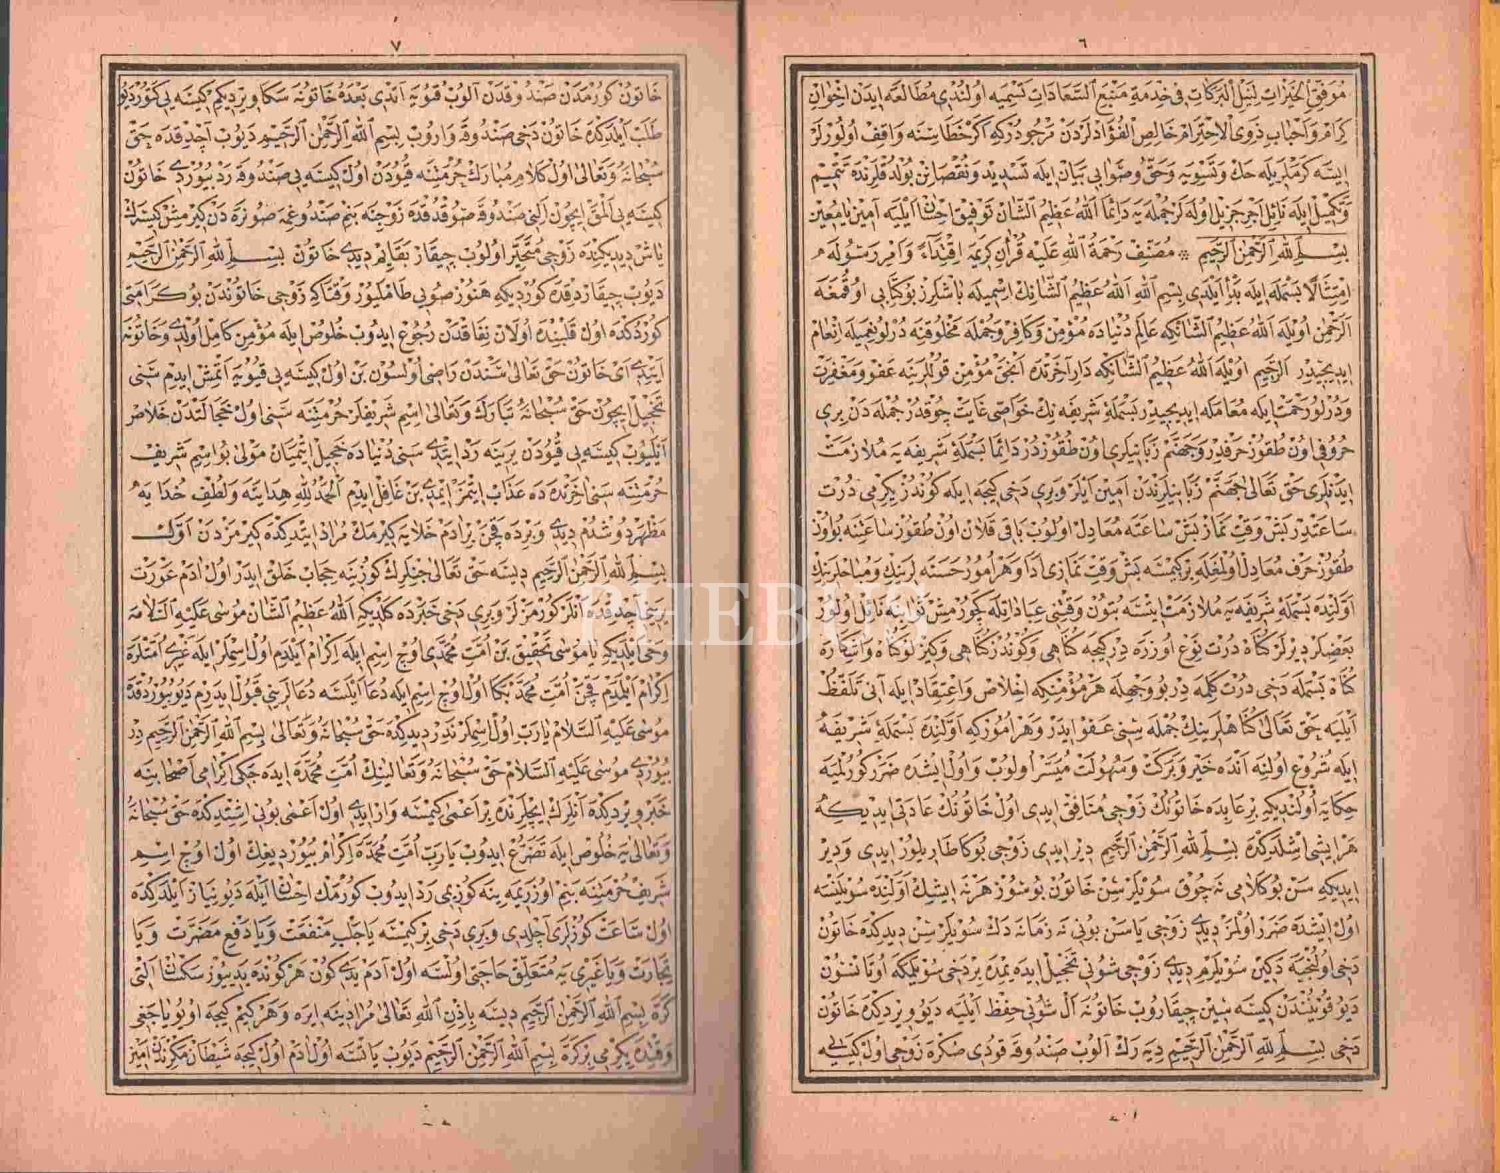 ٦
موفق الخيرات لنيل البركات في خدمة منبع السعادات تسميه اولندى مطالعه ايدن اخوان
كرام واحباب ذوى الاحترام خالص الفؤادلردن مرجودركه اكر خطاسنه واقف اولورلر
ايسه كرملريله حك وتسويه وحق وصوابى بيان ايله تسديد ونقصانن بولدقلرنده تتميم
وتكميل ايله نائل اجر جزيل اوله لر جمله يه دائما الله عظيم الشان توفيق احسان ايليه آمين يا معين
بسم الله الرحمن الرحيم * مصنف رحمة الله عليه قرآن كريمه اقتداءً وامر رسوله
امتثالا بسمله ايله بدأ ايلدى بسم الله الله عظيم الشانك اسميله باشلرز بو كتابى اوقمغه
الرحمن اويله الله عظيم الشانكه عالم دنياده مؤمن وكافر وجمله مخلوقنه درلو نعميله انعام
ايديجيدر الرحيم اويله الله عظيم الشانكه دار آخرتده انجق مؤمن قوللرينه عفو ومغفرت
ودرلو رحمت ايله معامله ايديجيدر بسملۀ شريفه نك خواصى غايت چوقدر جمله دن برى
حروفى اون طقوز حرفدر وجهنم زبانيلرى اون طقوزدر دائما بسملۀ شريفه يه ملازمت
ايدنلرى حق تعالى جهنم زبانيلرندن امين ايلر وبرى دخى كيجه ايله كوندز يكرمى درت
ساعتدر بش وقت نماز بش ساعته معادل اولوب باقى قلان اون طقوز ساعتنه بو اون
طقوز حرف معادل اولمغله بر كيمسه بش وقت نمازى ادا وهر امور حسنه لرينك ومباحلرينك
اولنده بسملۀ شريفه يه ملازمت ايتسه بتون وقتنى عباداتله كچورمش ثوابنه نائل اولور
بعضلر ديرلر كناه درت نوع اوزره در كيجه كناهى وكوندز كناهى وكيزلو كناه واشكاره
كناه بسمله دخى درت كلمه در بو وجهله هر مؤمنكه اخلاص واعتقاد ايله آنى تلفظ
ايليه حق تعالى كناهلرينك جمله سنى عفو ايدر وهر اموركه اولنده بسملۀ شريفه
ايله شروع اولنه آنده خير وبركت وسهولت ميسر اولوب واول ايشده ضرر كورلميه
حكايه اولنديكه بر عابده خاتونك زوجى منافق ايدى اول خاتونك عادتى ايديكه
هر ايشى اشلدكده بسم الله الرحمن الرحيم دير ايدى زوجى بوكا طاريلور ايدى ودير
ايديكه سن بو كلامى نه چوق سويلرسن خاتون بوسوز هر نه ايشك اولنده سويلنسه
اول ايشده ضرر اولمز ديدى زوجى يا سن بونى نه زمانه دك سويلرسن ديدكده خاتون
دخى اولنجيه دكين سويلرم ديدى زوجى شونى تخجيل ايده يمده بر دخى سويلمكه اوتانسون
ديو قوينندن كيسه سنين چيقاروب خاتونه آل شونى حفظ ايليه ديو ويردكده خاتون
دخى بسم الله الرحمن الرحيم ديه رك آلوب صندوقه قودى صكره زوجى اول كيسه يى
٧
خاتون كورمدن صندوقدن آلوب قويه آتدى بعده خاتونه سكا ويرديكم كيسه يى كتور ديو
طلب ايلدكده خاتون دخى صندوقه واروب بسم الله الرحمن الرحيم ديوب آچدقده حق
سبحانه وتعالى اول كلام مبارك حرمتنه قيودن اول كيسه يى صندوقه رد بيوردى خاتون
كيسه يى آلمق ايچون الينى صندوقه صوقدقده زوجنه بنم صندوغمه صو نره دن كيرمش كيسه لر
ياش ديديكنده زوجى متحير اولوب چيقار بقايم ديدى خاتون بسم الله الرحمن الرحيم
ديوب چيقاردقده كورديكه هنوز صويى طاملیور وقتاكه زوجى خاتوندن بو كرامتى
كوردكده اول قلبنده اولان نفاقدن رجوع ايدوب خلوص ايله مؤمن كامل اولدى وخاتونه
ايتدى اى خاتون حق تعالى سندن راضى اولسون بن اول كيسه يى قيويه آتمش ايدم سنى
تخجيل ايچون حق سبحانه تبارك وتعالى اسم شريفلر حرمتنه سنى اول خجالتدن خلاص
ايليوب كيسه يى قيودن يرينه رد ايتدى سنى دنياده خجيل ايتميان مولى بو اسم شريف
حرمتنه سنى آخرتده ده عذاب ايتمز ايمدى بن غافل ايدم الحمد لله هدايته ولطف خدايه
مظهر دوشدم ديدى وبرده قچن بر آدم خلايه كيرمك مراد ايتدكده كيرمزدن اول
بسم الله الرحمن الرحيم ديسه حق تعالى جنلرك كوزينه حجاب خلق ايدر اول آدم عورت
يرينى آچدقده آنلر كورمزلر وبرى دخى خبرده كلديكه الله عظيم الشان موسى عليه السلامه
وحى ايلديكه يا موسى تحقيق بن امت محمدى اوچ اسم ايله اكرام ايلدم اول اسملر ايله غيرى امتلره
اكرام ايلمدم قچن امت محمد بكا اول اوچ اسم ايله دعا ايلسه دعالرينى قبول ايدرم ديو بيوردقده
موسى عليه السلام يا رب اول اسملر ندر ديدكده حق سبحانه وتعالى بسم الله الرحمن الرحيم در
بيوردى موسى عليه السلام حق سبحانه وتعالينك امت محمده ايده جكى اكرامى اصحابنه
خبر ويردكده آنلرك ايچلرنده بر اعمى كيمسه وار ايدى اول اعمى بونى اشتدكده حق سبحانه
وتعالى يه خلوص ايله تضرع ايدوب يا رب امت محمده اكرام بيورديغك اول اوچ اسم
شريف حرمتنه بنم اوزريمه ينه كوزيمى رد ايدوب كورمك احسان ايله ديو نياز ايلدكده
اول ساعت كوزلرى آچلدى وبرى دخى بر كيمسه يا جلب منفعت ويا دفع مضرت ويا
تجارت ويا غيرى يه متعلق حاجتى اولسه اول آدم يدى كون هر كونده يديوز سكسان التى
كره بسم الله الرحمن الرحيم ديسه باذن الله تعالى مرادينه ايره وهر كيم كيجه اويوياجغى
وقتده يكرمى بر كره بسم الله الرحمن الرحيم ديوب ياتسه اول آدم اول كيجه شيطان مكرندن امين